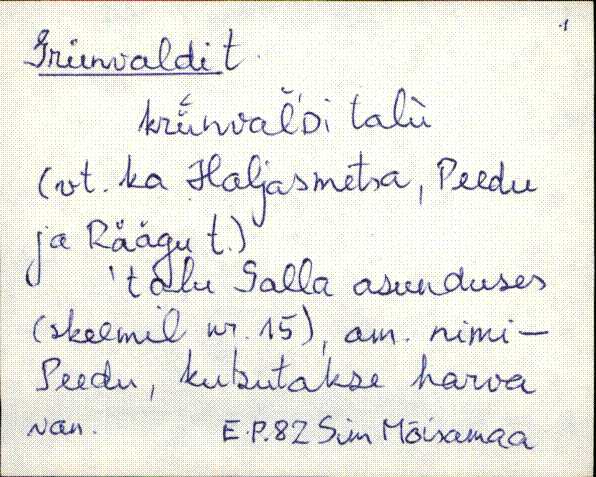 Grünvaldi t.
krǘnval̆'Di talù
(vt. ka Haljasmetsa, Peedu
ja Räägu t.)
'talu Salla asunduses
(skeemil nr. 15), am. nimi-
Peedu, kutsutakse harva
van. E.P.82 Sim Mõisamaa